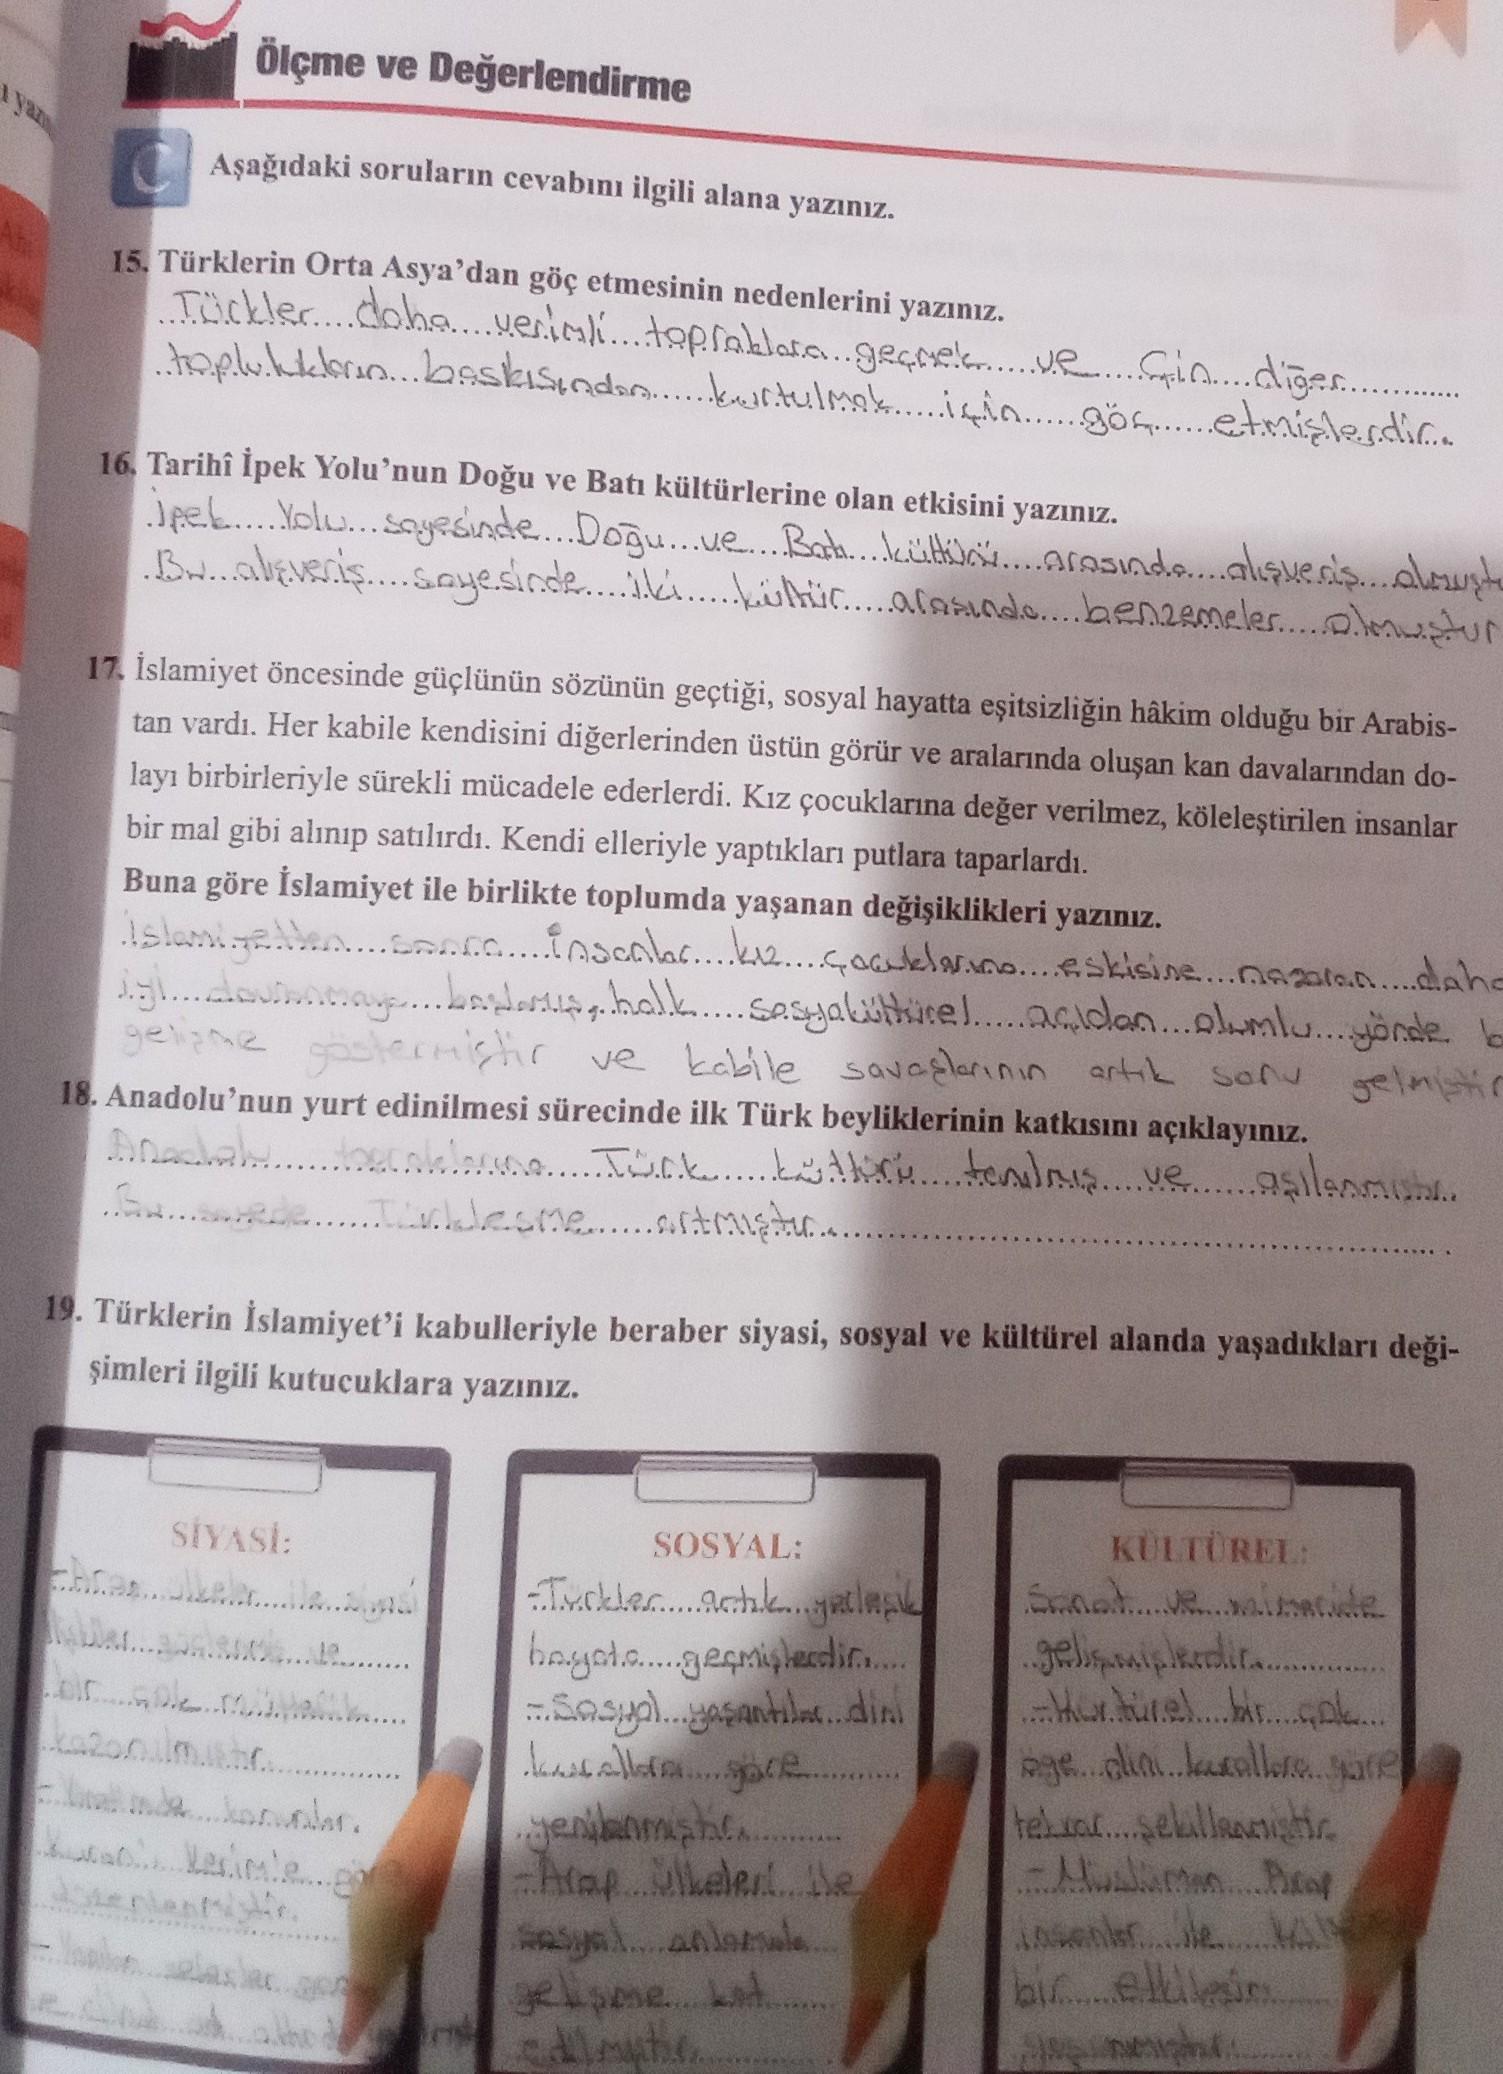 Ölçme ve Değerlendirme
Aşağıdaki soruların cevabını ilgili alana yazınız.
15. Türklerin Orta Asya'dan göç etmesinin nedenlerini yazınız.
Türkler daha verimli topraklara geçmek ve Çin diğer
toplulukların baskısından kurtulmak için göç etmişlerdir.
16. Tarihî İpek Yolu'nun Doğu ve Batı kültürlerine olan etkisini yazınız.
İpek Yolu sayesinde Doğu ve Batı kültürü arasında alışveriş olmuştu
Bu alışveriş sayesinde iki kültür arasında benzemeler olmuştur
17. İslamiyet öncesinde güçlünün sözünün geçtiği, sosyal hayatta eşitsizliğin hâkim olduğu bir Arabis-
tan vardı. Her kabile kendisini diğerlerinden üstün görür ve aralarında oluşan kan davalarından do-
layı birbirleriyle sürekli mücadele ederlerdi. Kız çocuklarına değer verilmez, köleleştirilen insanlar
bir mal gibi alınıp satılırdı. Kendi elleriyle yaptıkları putlara taparlardı.
Buna göre İslamiyet ile birlikte toplumda yaşanan değişiklikleri yazınız.
İslamiyetten sonra insanlar kız çocuklarına eskisine nazaran daha
iyi davranmaya başlamış, halk sosyakültürel açıdan olumlu yönde b
gelişme göstermiştir ve kabile savaşlarının artık sonu gelmiştir
18. Anadolu'nun yurt edinilmesi sürecinde ilk Türk beyliklerinin katkısını açıklayınız.
Anadolu topraklarına Türk kültürü tanılmış ve aşılanmıştır.
Bu sayede Türkleşme artmıştır.
19. Türklerin İslamiyet'i kabulleriyle beraber siyasi, sosyal ve kültürel alanda yaşadıkları deği-
şimleri ilgili kutucuklara yazınız.
SİYASİ:
ile siyasi
ve
bir çok
kazanılmıştır.
kanunlar.
Kuran'ı Kerim'e
düzenlenmiştir.
SOSYAL:
-Türkler artık yerleşik
hayata geçmişlerdir.
-Sosyal yaşantılar dini
kurallara göre
yenilenmiştir.
-Arap ülkeleri ile
sosyal anlamda
gelişme kat
edilmiştir.
KÜLTÜREL:
Sanat ve mimaride
gelişmişlerdir.
-Kültürel bir çok
öge dini kurallara göre
tekrar şekillenmiştir
-Müslüman Arap
insanlar ile
bir etkileşim